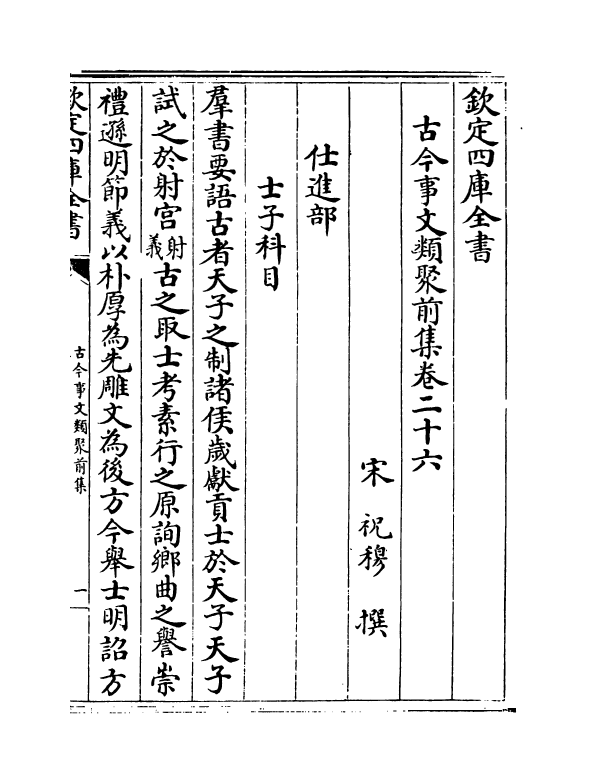 欽定四庫全書
古今事文類聚前集卷二十六
宋 祝穆 撰
仕進部
士子科目
羣書要語古者天子之制諸侯歲獻貢士於天子天子
試之於射宮射義古之取士考素行之原詢鄉曲之譽崇
禮遜明節義以朴厚為先雕文為後方今舉士明詔方
欽定四庫全書
古今事文類聚前集
一